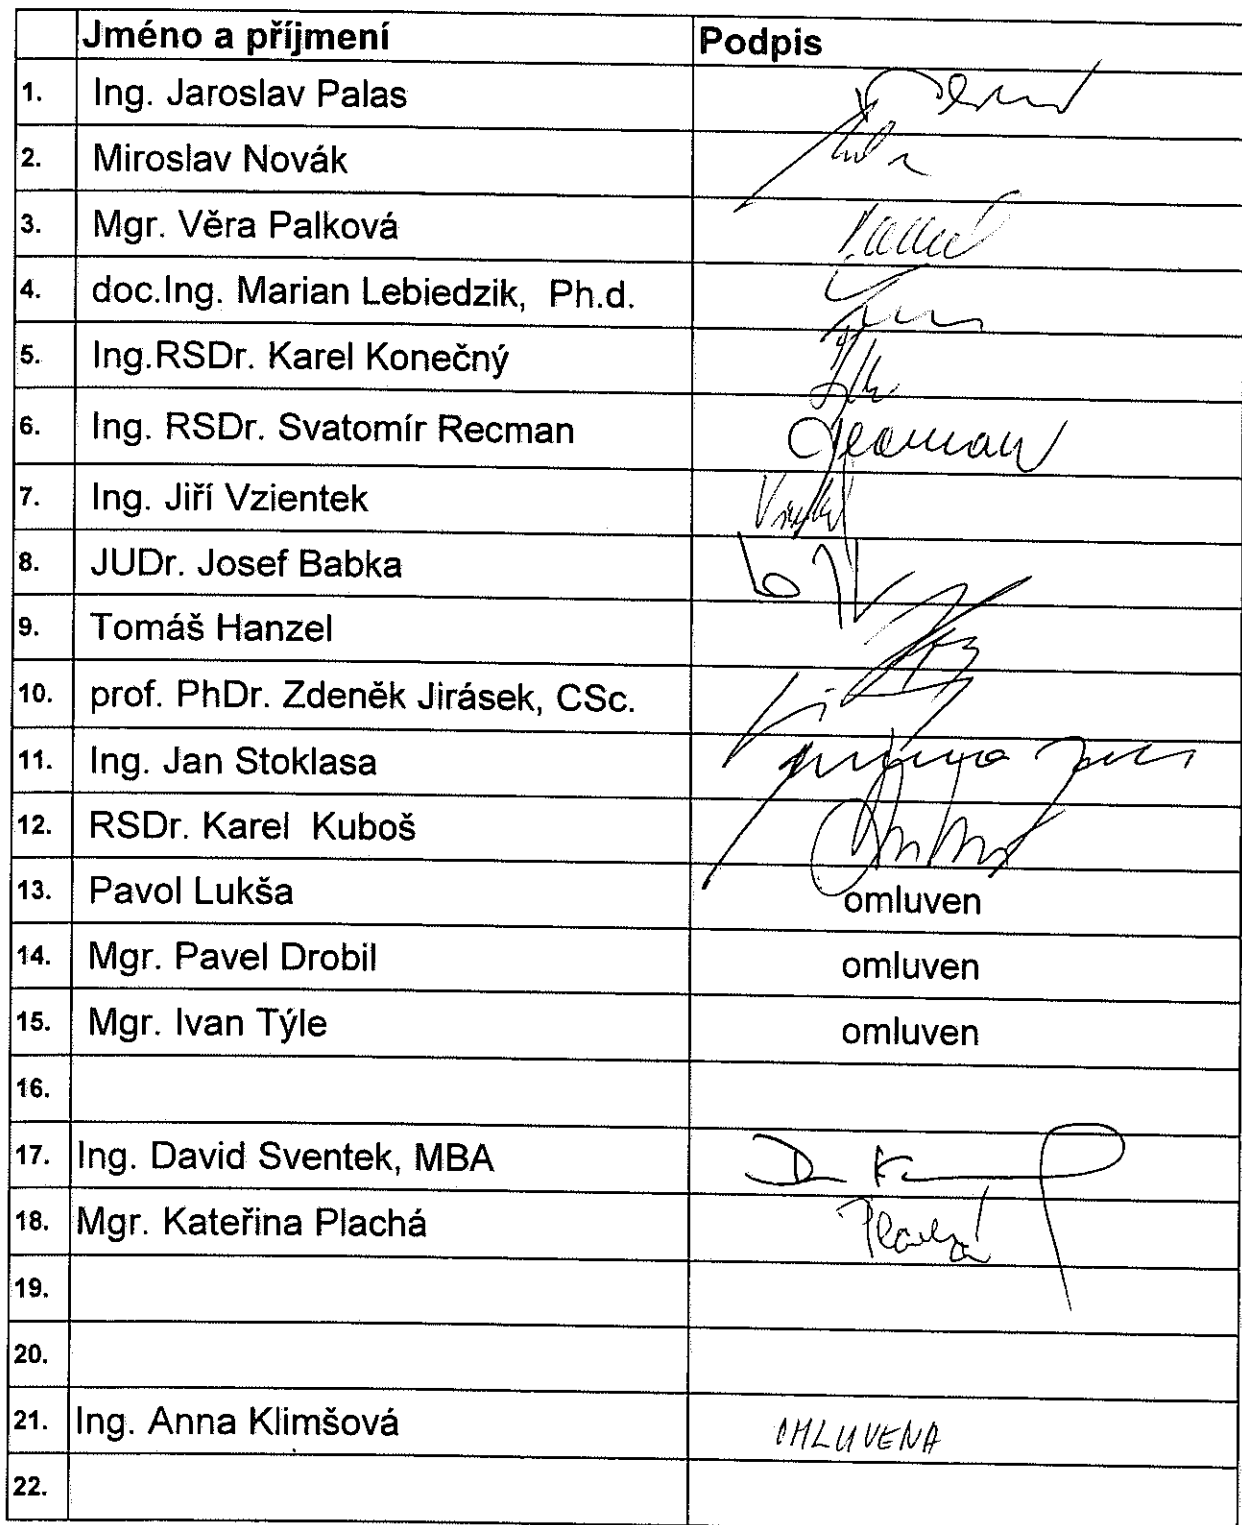 Jméno a příjmení Podpis
1. Ing. Jaroslav Palas
2. Miroslav Novák
3. Mgr. Věra Palková
4. doc.Ing. Marian Lebiedzik, Ph.d.
5. Ing.RSDr. Karel Konečný
6. Ing. RSDr. Svatomír Recman
7. Ing. Jiří Vzientek
8. JUDr. Josef Babka
9. Tomáš Hanzel
10. prof. PhDr. Zdeněk Jirásek, CSc.
11. Ing. Jan Stoklasa
12. RSDr. Karel Kuboš
13. Pavol Lukša omluven
14. Mgr. Pavel Drobil omluven
15. Mgr. Ivan Týle omluven
16.
17. Ing. David Sventek, MBA
18. Mgr. Kateřina Plachá Plachá
19.
20.
21. Ing. Anna Klimšová OMLUVENA
22.